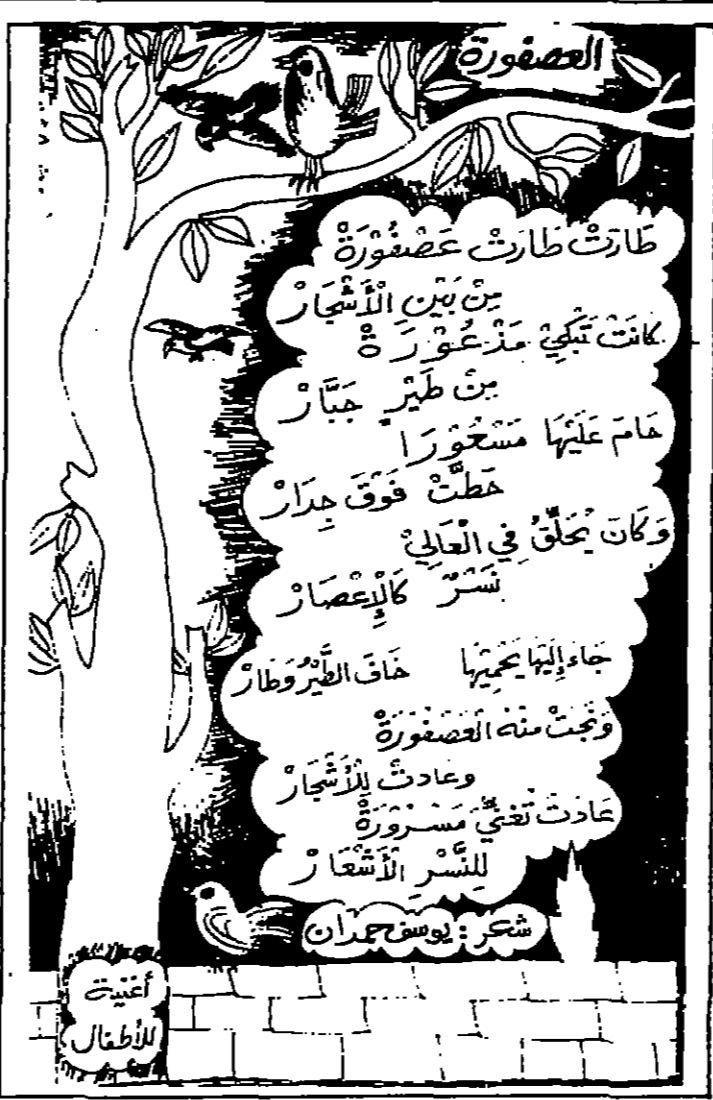 العصفورة
طَارَتْ طَارَتْ عَصْفُوْرَةْ
مِنْ بَيْنِ الْأَشْجَارْ
كَانَتْ تَبْكِيْ مَذْعُوْرَةْ
مِنْ طَيْرٍ جَبَّارْ
حَامَ عَلَيْهَا مَسْعُوْرَا
حَطَّتْ فَوْقَ جِدَارْ
وَكَانَ يُحَلِّقُ فِي الْعَالِيْ
نَسْرٌ كَالْإِعْصَارْ
جَاءَ إِلَيْهَا يَحْمِيْهَا خَافَ الطَّيْرُ وَطَارْ
وَنَجَتْ مِنْهُ الْعَصْفُوْرَةْ
وعادتْ لِلْأَشْجَارْ
عَادَتْ تُغَنِّيْ مَسْرُوْرَةْ
لِلنَّسْرِ الْأَشْعَارْ
شعر : يوسف حمدان
أغنية
للأطفال